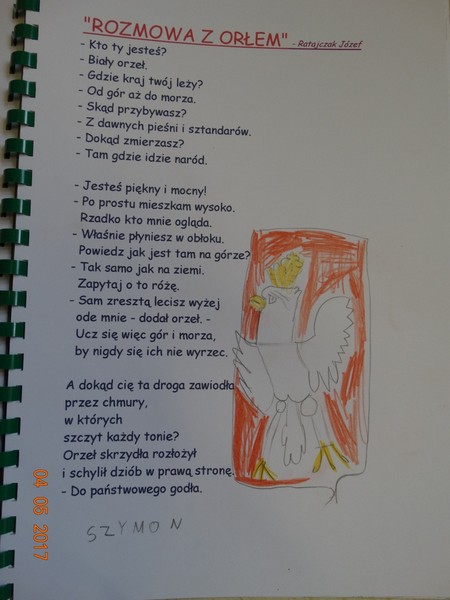 "ROZMOWA Z ORŁEM" - Ratajczak Józef
- Kto ty jesteś?
- Biały orzeł.
- Gdzie kraj twój leży?
- Od gór aż do morza.
- Skąd przybywasz?
- Z dawnych pieśni i sztandarów.
- Dokąd zmierzasz?
- Tam gdzie idzie naród.
- Jesteś piękny i mocny!
- Po prostu mieszkam wysoko.
Rzadko kto mnie ogląda.
- Właśnie płyniesz w obłoku.
Powiedz jak jest tam na górze?
- Tak samo jak na ziemi.
Zapytaj o to różę.
- Sam zresztą lecisz wyżej
ode mnie - dodał orzeł. -
Ucz się więc gór i morza,
by nigdy się ich nie wyrzec.
A dokąd cię ta droga zawiodła
przez chmury,
w których
szczyt każdy tonie?
Orzeł skrzydła rozłożył
i schylił dziób w prawą stronę.
- Do państwowego godła.
SZYMON
04 05 2017